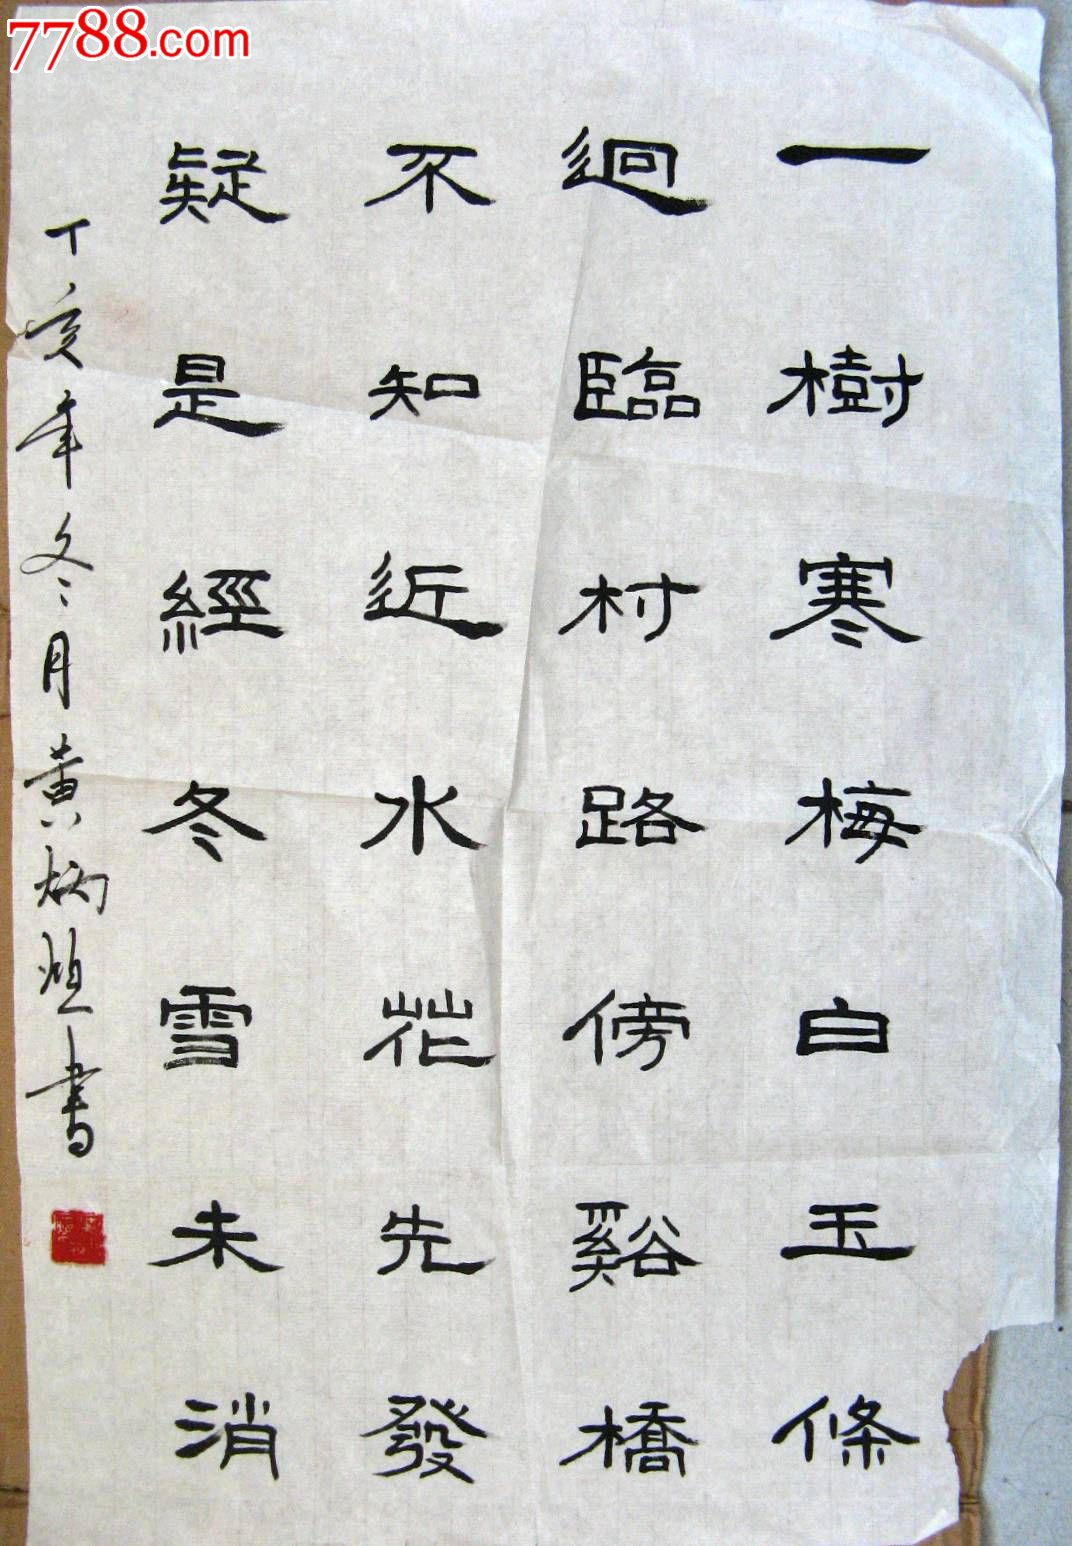 7788.com
一樹寒梅白玉條
迥臨村路傍谿橋
不知近水花先發
疑是經冬雪未消
丁亥年冬月黄炳煊書